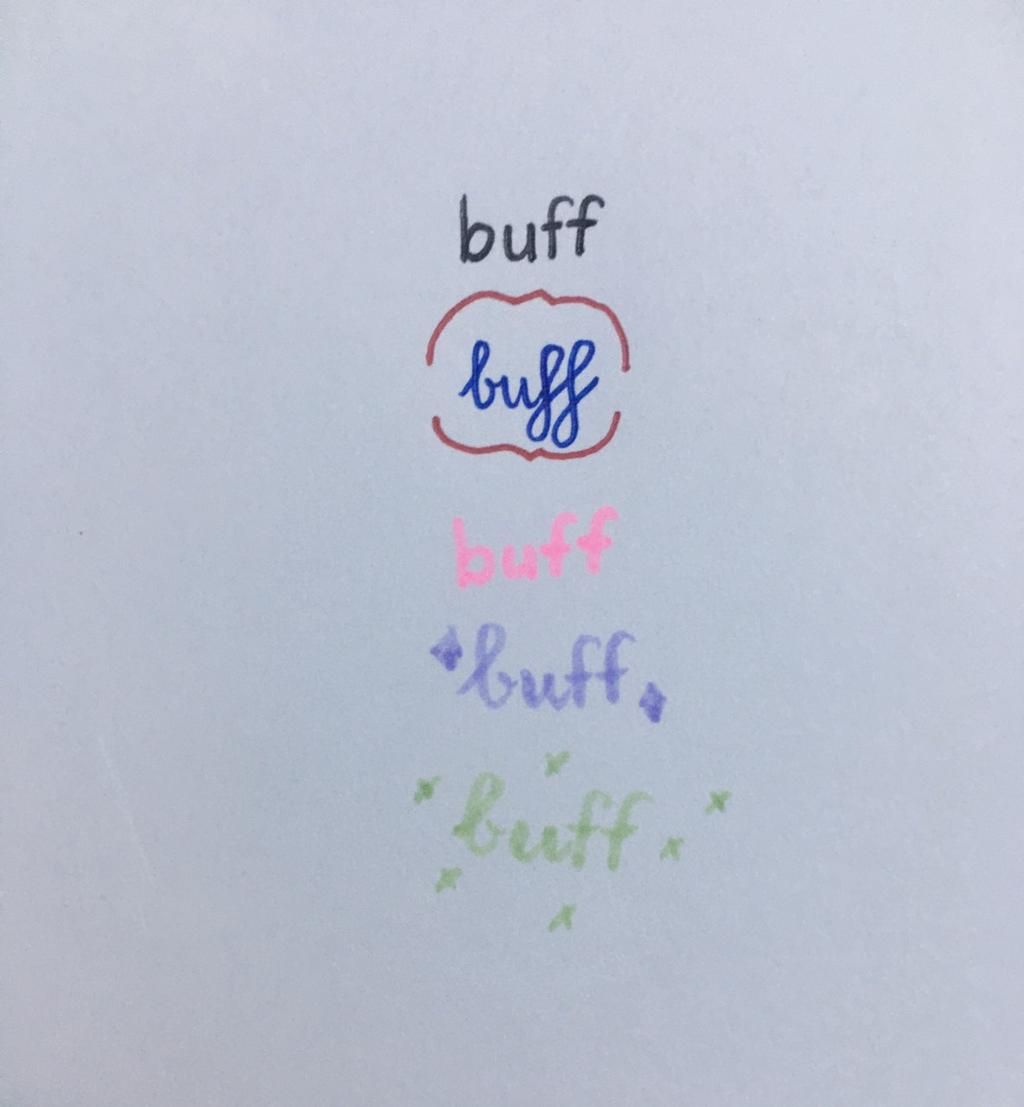 buff
buff
buff
buff
buff